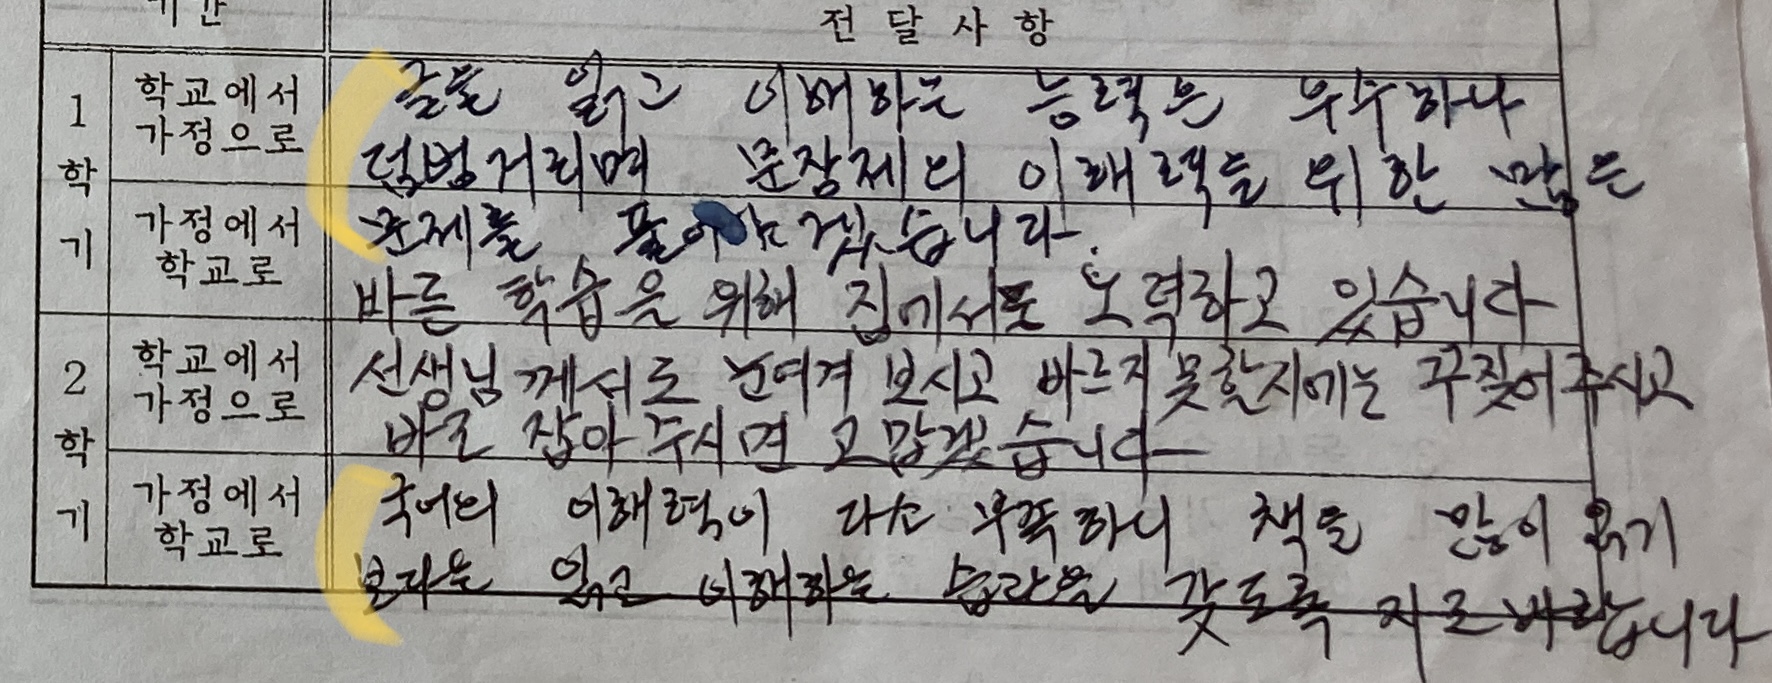 기간
전달사항
1학기
학교에서
가정으로
글을 읽고 이해하는 능력은 우수하나
덤벙거리며 문장제의 이해력을 위한 많은
가정에서
학교로
문제를 풀어야겠습니다.
바른 학습을 위해 집에서도 노력하고 있습니다
2학기
학교에서
가정으로
선생님께서도 눈여겨 보시고 바르지못할지에는 꾸짖어주시고
바로 잡아 주시면 고맙겠습니다
가정에서
학교로
국어의 이해력이 다소 부족하니 책을 많이 읽기
보다는 읽고 이해하는 습관을 갖도록 지도바랍니다